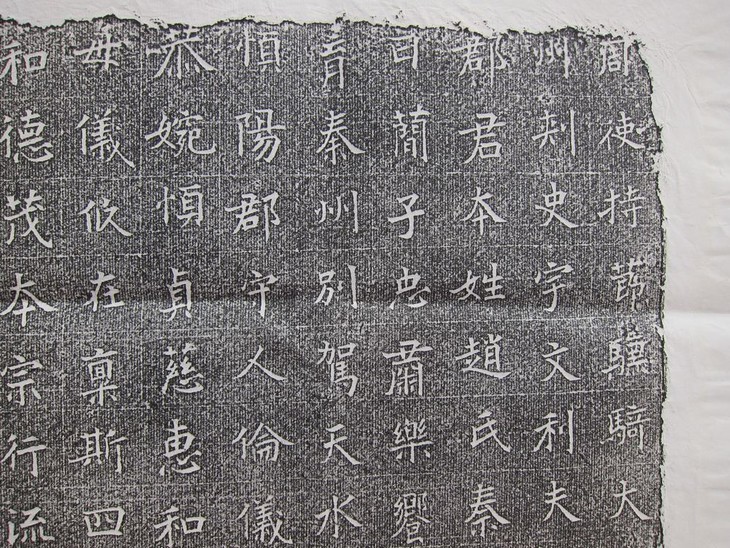 周使持莭驃騎大
州刾史宇文利夫
郡君夲姓趙氏秦
日蕳子忠肅樂響
育秦州別駕天水
慎陽郡守人倫儀
恭婉慎貞慈恵和
毋儀攸在稟斯四
和德茂夲宗行流